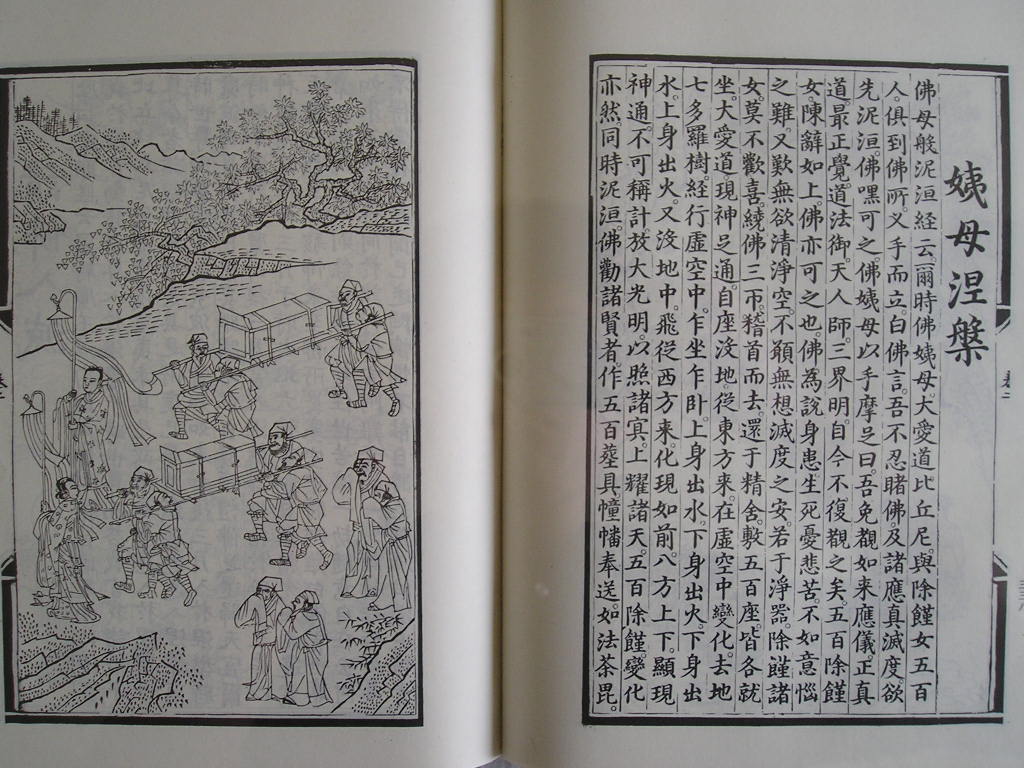 姨母涅槃
佛母般泥洹経云。爾時佛姨母。大愛道比丘尼。與除饉女五百
人。俱到佛所。叉手而立。白佛言。吾不忍睹佛。及諸應真滅度欲
先泥洹。佛嘿可之。佛姨母以手摩足曰。吾免覩如来應儀。正真
道。最正覺。道法御。天人師。三界明。自今不復覩之矣。五百除饉
女。陳辭如上。佛亦可之也。佛為說身患。生死憂悲苦。不如意惱
之難。又歎無欲清淨空。不願無想滅度之安。若于淨器。除饉諸
女。莫不歡喜。繞佛三帀。稽首而去。還于精舍。敷五百座。皆各就
坐。大愛道現神足通。自座沒地。從東方来。在虛空中變化。去地
七多羅樹。経行虛空中。乍坐乍卧。上身出水。下身出火。下身出
水。上身出火。又沒地中。飛從西方来。化現如前。八方上下。顯現
神通。不可稱計。放大光明。以照諸冥。上耀諸天。五百除饉變化
亦然同時泥洹。佛勸諸賢者。作五百轝具幢幡奉送。如法荼毘